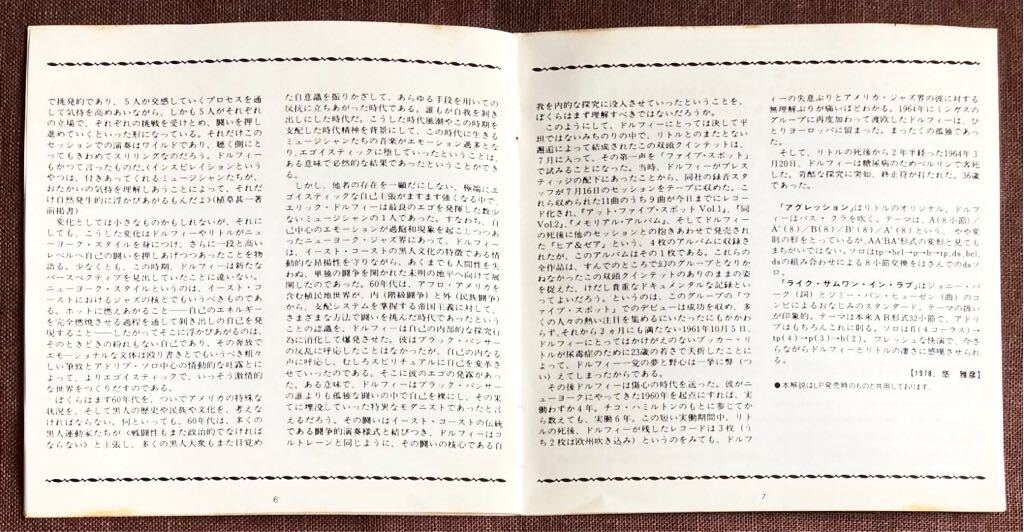 で挑発的であり、5人が交感していくプロセスを通
して気持を高めあいながら、しかも5人がそれぞれ
の立場で、それぞれの挑戦を受けとめ、闘いを押し
進めていくといった形になっている。それだけこの
セッションでの演奏はワイルドであり、聴く側にと
ってもきわめてスリリングなのだろう。ドルフィー
もかつて言ったものだ。〈インスピレイションという
やつは、付きあってくれるミュージシャンたちが、
おたがいの気持を理解しあうことによって、それだ
け自然発生的に浮びあがるもんだよ〉(植草甚一著
前掲書)
変化としては小さなものかもしれないが、それに
しても、こうした変化はドルフィーやリトルがニュ
ーヨーク・スタイルを身につけ、さらに一段と高い
レベルへ自己の闘いを押しあげつつあったことを物
語る。少なくとも、この時期、ドルフィーは新たな
パースペクティブを見出していたことに違いない。
ニューヨーク・スタイルというのは、イースト・コ
ーストにおけるジャズの核とでもいうべきものであ
る。ホットに燃えあがること――自己のエネルギー
を完全燃焼させる過程を通して剥き出しの自己を発
現すること――したがってそこに浮びあがるのは、
そのときどきの紛れもない自己であり、その奔放で
エモーショナルな文体は殴り書きとでもいうべき粗々
しい筆致とアドリブ・ソロ中心の情動的な吐露とに
よって、よりエゴイスティックで、いっそう激情的
な世界をつくりだすのである。
ぼくらはまず60年代を、ついでアメリカの特殊な
状況を、そして黒人の歴史や民族や文化を、考えな
ければならない。何といっても、60年代は、多くの
黒人運動家たちが〈戦闘性もまた政治的でなければ
ならない〉と主張し、多くの黒人大衆もまた目覚め
た自意識を振りかざして、あらゆる手段を用いての
反抗に立ちあがった時代である。誰もが自我を剥き
出しにした時代だ。こうした時代風潮やこの時期を
支配した時代精神を背景にして、この時代に生きる
ミュージシャンたちの音楽がエモーション過多とな
り、エゴイスティックに堕していったということは、
ある意味で必然的な結果であったということができ
る。
しかし、他者の存在を一顧だにしない、極端にエ
ゴイスティックな自己主張がますます強くなる中で、
エリック・ドルフィーは最良のエゴを発揮した数少
ないミュージシャンの1人であった。すなわち、自
己中心のエモーションが過飽和現象を起こしつつあ
ったニューヨーク・ジャズ界にあって、ドルフィー
は、イースト・コーストの黒人文化の特徴である情
動的な昂揚性を守りながら、あくまでも人間性を失
わぬ、単独の闘争を開かれた未明の地平へ向けて展
開したのであった。60年代は、アフロ・アメリカを
含む植民地世界が、内(階級闘争)と外(民族闘争)
から、支配システムを掌握する帝国主義に対して、
さまざまな方法で闘いを挑んだ時代であったという
ことの認識を、ドルフィーは自己の内部的な探究行
為に消化して爆発させた。彼はブラック・パンサー
の反乱に呼応したことはなかったが、自己の内なる
声に呼応し、むしろスピリチュアルに自己を変革さ
せていったのである。そこに彼のエゴの見露があっ
た。ある意味で、ドルフィーはブラック・パンサー
の誰よりも孤独な闘いの中で自己を裸にし、その果
てに埋没していった特異なモダニストであったと言
えるだろう。その闘いはイースト・コーストの伝統
である闘争的演奏様式と結びつき、ドルフィーはコ
ルトレーンと同じように、その闘いの核心である自
6
我を内的な探究に没入させていったということを、
ぼくらはまず理解すべきではないだろうか。
このようにして、ドルフィーにとっては決して平
坦ではないみちのりの中で、リトルとのまたとない
邂逅によって結成されたこの双頭クインテットは、
7月に入って、その第一声を「ファイブ・スポット」
で試みることになった。当時、ドルフィーがプレス
ティッジの配下にあったことから、同社の録音スタ
ッフが7月16日のセッションをテープに収めた。こ
れら収められた11曲のうち9曲が今日までにレコー
ド化され、『アット・ファイブ・スポットVol.1』、『同
Vol.2』、『メモリアル・アルバム』、そしてドルフィー
の死後に他のセッションとの抱きあわせで発売され
た『ヒア&ゼア』という、4枚のアルバムに収録され
たが、このアルバムはその1枚である。これらの
全作品は、すんでのところで幻のグループとなりか
ねなかったこの双頭クインテットのありのままの姿
を捉えた、けだし貴重なドキュメンタルな記録とい
ってよいだろう。というのは、このグループの「フ
ァイブ・スポット」でのデビューは成功を収め、多
くの人々の熱い注目を集めるにいたったにもかかわ
らず、それから2ヵ月にも満たない1961年10月5日、
ドルフィーにとってはかけがえのないブッカー・リ
トルが尿毒症のために23歳の若さで夭折したことに
よって、ドルフィー一党の夢と野心は一挙に弊(つ
い)えてしまったからである。
その後ドルフィーは傷心の時代を送った。彼がニ
ューヨークにやってきた1960年を起点にすれば、実
働わずか4年。チコ・ハミルトンのもとに参じてか
ら数えても、実働6年。この短い実働期間中、リト
ルの死後、ドルフィーが残したレコードは3枚(う
ち2枚は欧州吹き込み)というのをみても、ドルフ
ィーの失意ぶりとアメリカ・ジャズ界の彼に対する
無理解ぶりが痛いほどわかる。1964年にミンガスの
グループに再度加わって渡欧したドルフィーは、ひ
とりヨーロッパに留まった。まったくの孤独であっ
た。
そして、リトルの死後から2年半経った1964年3
月20日、ドルフィーは糖尿病のためベルリンで客死
した。奇酷な探究に突如、終止符が打たれた。36歳
であった。
「アグレッション」はリトルのオリジナル。ドルフ
ィーはバス・クラを吹く。テーマは、A(8小節)/
A′(8)/B(8)/B′(8)/A′(8)という、やや変
則の形をとっているが、AA′BA′形式の変形と見ても
まちがいではない。ソロはtp→bcl→p→b→tp,ds,bcl,
dsの組み合わせによる8小節交換をはさんでのdsソ
ロ。
「ライク・サムワン・イン・ラブ」はジョニー・バ
ーク(詞)とジミー・バン・ヒューゼン(曲)のコ
ンビによるおなじみのスタンダード。テーマの扱い
が印象的。テーマは本来AB形式32小節で、アドリ
ブはもちろんこれに則る。ソロはfl(4コーラス)→
tp(4)→p(3)→b(2)。フレッシュな快演で、今さ
らながらドルフィーとリトルの凄さに感嘆させられ
る。
【1978、悠 雅彦】
●本解説はLP発売時のものと共用しております。
7